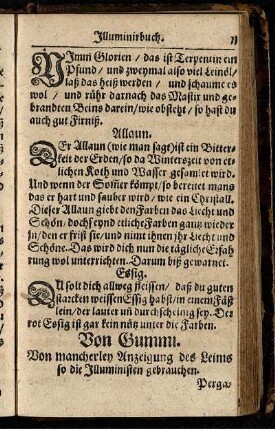 Illuminirbuch.
NImm Glorien / das ist Terpentin ein
Pfund / und zweymal also viel Leinöl /
laß das heiß werden / und schaume es
wol / und rühr darnach das Mastix und ge-
brandten Beins darein / wie obsteht / so hast du
auch gut Firniß.
Allaun.
DEr Allaun (wie man sagt) ist ein Bitter-
keit der Erden / so da Winterszeit von et-
lichen Koth und Wasser gesamlet wird.
Und wenn der Som̃er kom̃pt / so bereitet mans
das er hart und sauber wird / wie ein Christall.
Dieser Allaun giebt den Farben das Liecht und
Schön / doch seynd etliche Farben gantz wieder
In / den er frist sie / und nim̃t ihnen ihr Liecht und
Schöne. Das wird dich nun die tägliche Erfah
rung wol unterrichten. Darum biß gewarnet.
Essig.
DU solt dich allweg fleissen / daß du guten
starcken weissen Essig habst / in einem Fäß
lein / der lauter uñ durchscheinig sey. Der
rot Essig ist gar kein nütz unter die Farben.
Von Gummi.
Von mancherley Anzeigung des Leims
so die Illuministen gebrauchen.
Perga-